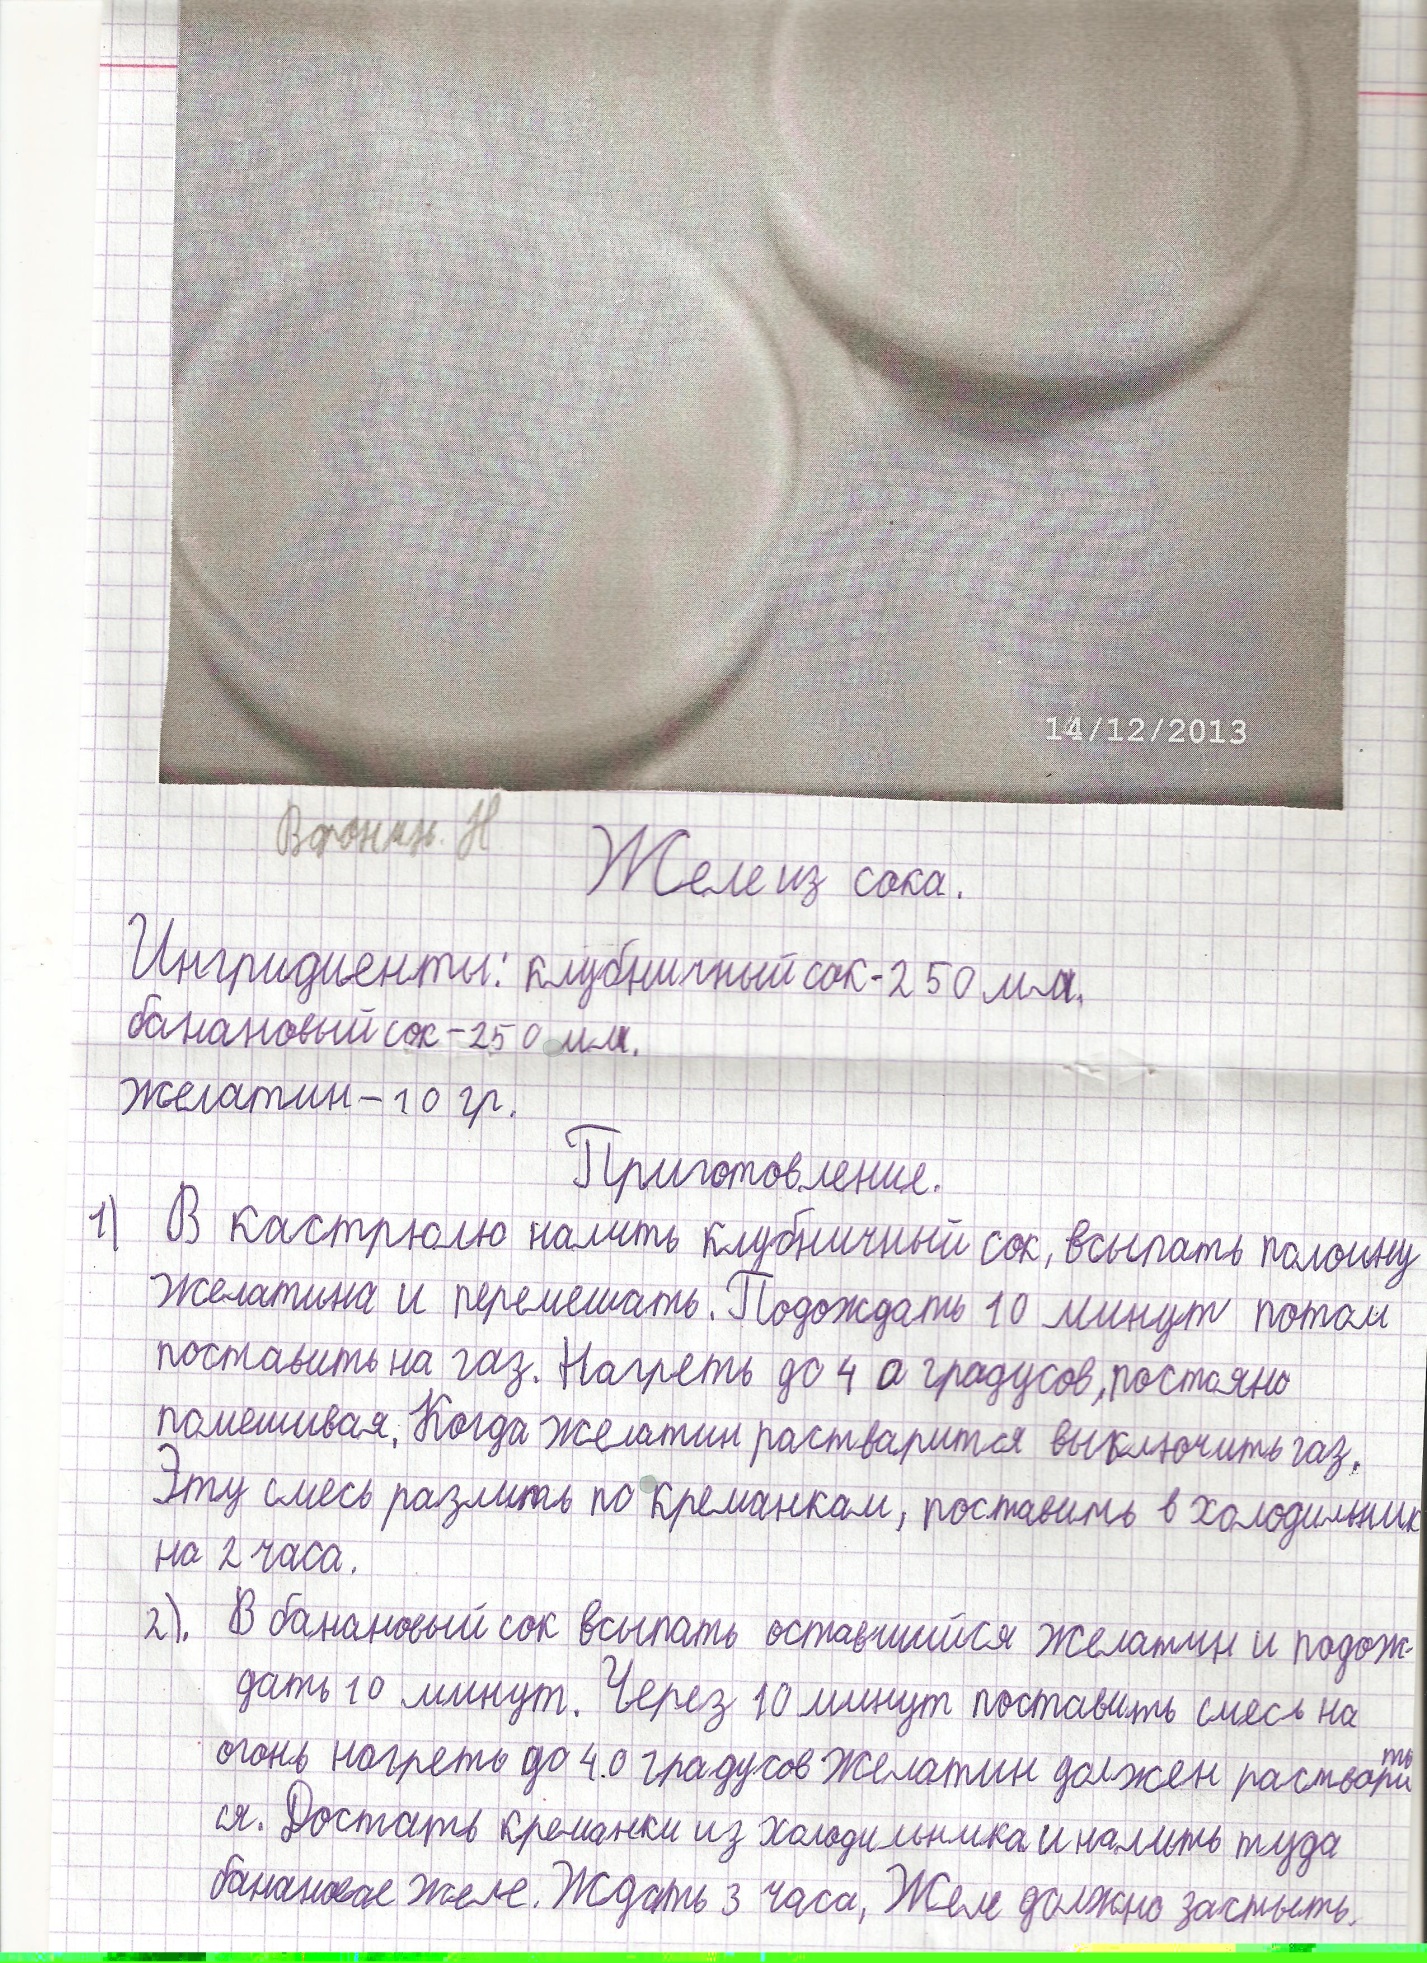 14/12/2013
Желе из сока.
Ингридиенты: клубничный сок - 250 мл.
банановый сок - 250 мл.
желатин - 10 гр.
Приготовление.
1) В кастрюлю налить клубничный сок, всыпать половину
желатина и перемешать. Подождать 10 минут потом
поставить на газ. Нагреть до 40 градусов, постояно
помешивая. Когда желатин растварится выключить газ.
Эту смесь разлить по креманкам, поставить в холодильник
на 2 часа.
2). В банановый сок всыпать оставшийся желатин и подож-
дать 10 минут. Через 10 минут поставить смесь на
огонь нагреть до 4.0 градусов желатин должен растварить
ся. Достать креманки из холодильника и налить туда
банановое желе. Ждать 3 часа, Желе должно застыть.